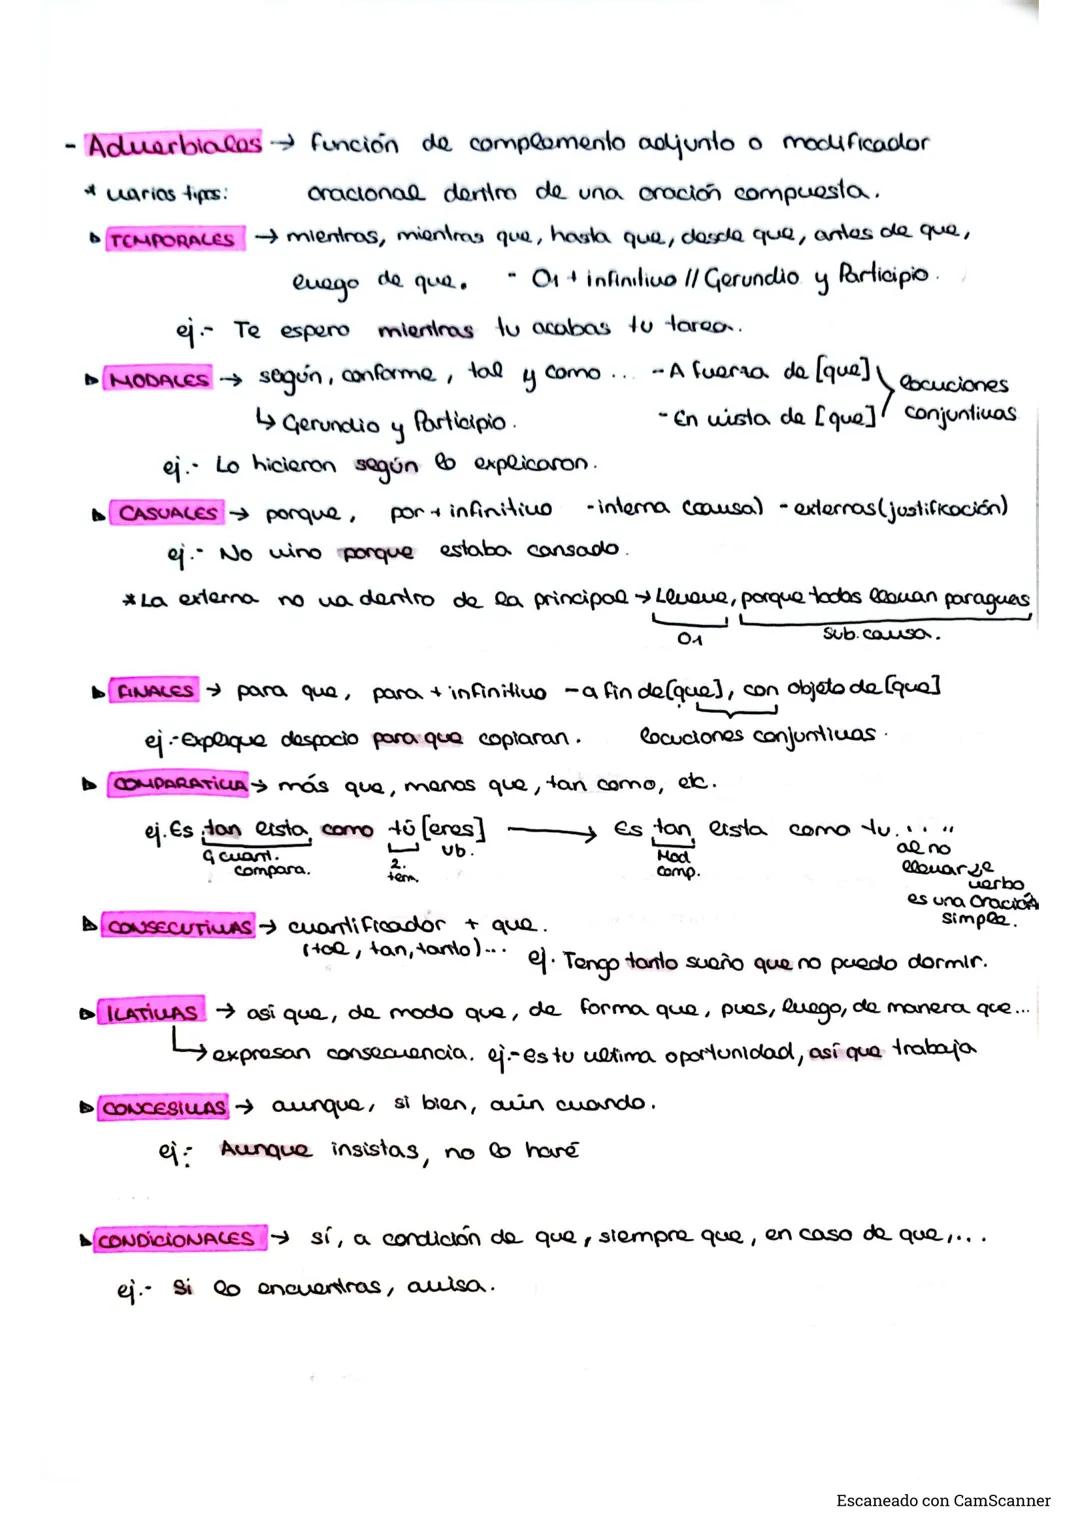 - Adverbiales → función de complemento adjunto o modificador
* varios tipos: oracional dentro de una oración compuesta.
▸ TEMPORALES → mientras, mientras que, hasta que, desde que, antes de que,
luego de que. - O1 + infinitivo // Gerundio y Participio.
ej.- Te espero mientras tu acabas tu tarea.
▸ MODALES → según, conforme, tal y como ... - A fuerza de [que] locuciones
↳ Gerundio y Participio. - En vista de [que] conjuntivas
ej.- Lo hicieron según lo explicaron.
▸ CASUALES → porque, por + infinitivo - interna (causa) - externas (justificación)
ej.- No vino porque estaba cansado.
* La externa no va dentro de la principal → Llueve, porque todos llevan paraguas
O1 sub. causa.
▸ FINALES → para que, para + infinitivo - a fin de [que], con objeto de [que]
ej.- Explique despacio para que copiaran. locuciones conjuntivas.
▸ COMPARATIVA → más que, menos que, tan como, etc.
ej. Es tan lista como tú [eres] → Es tan lista como tu....
q cuant. 2. vb. Mod al no
compara. tem. comp. llevar se
verbo
es una oración
simple.
▸ CONSECUTIVAS → cuantificador + que.
(tal, tan, tanto)... ej. Tengo tanto sueño que no puedo dormir.
▸ ILATIVAS → así que, de modo que, de forma que, pues, luego, de manera que...
↳ expresan consecuencia. ej.- es tu ultima oportunidad, así que trabaja
▸ CONCESIVAS → aunque, si bien, aún cuando.
ej.- Aunque insistas, no lo haré
▸ CONDICIONALES → sí, a condición de que, siempre que, en caso de que,...
ej.- Si lo encuentras, avisa.
Escaneado con CamScanner